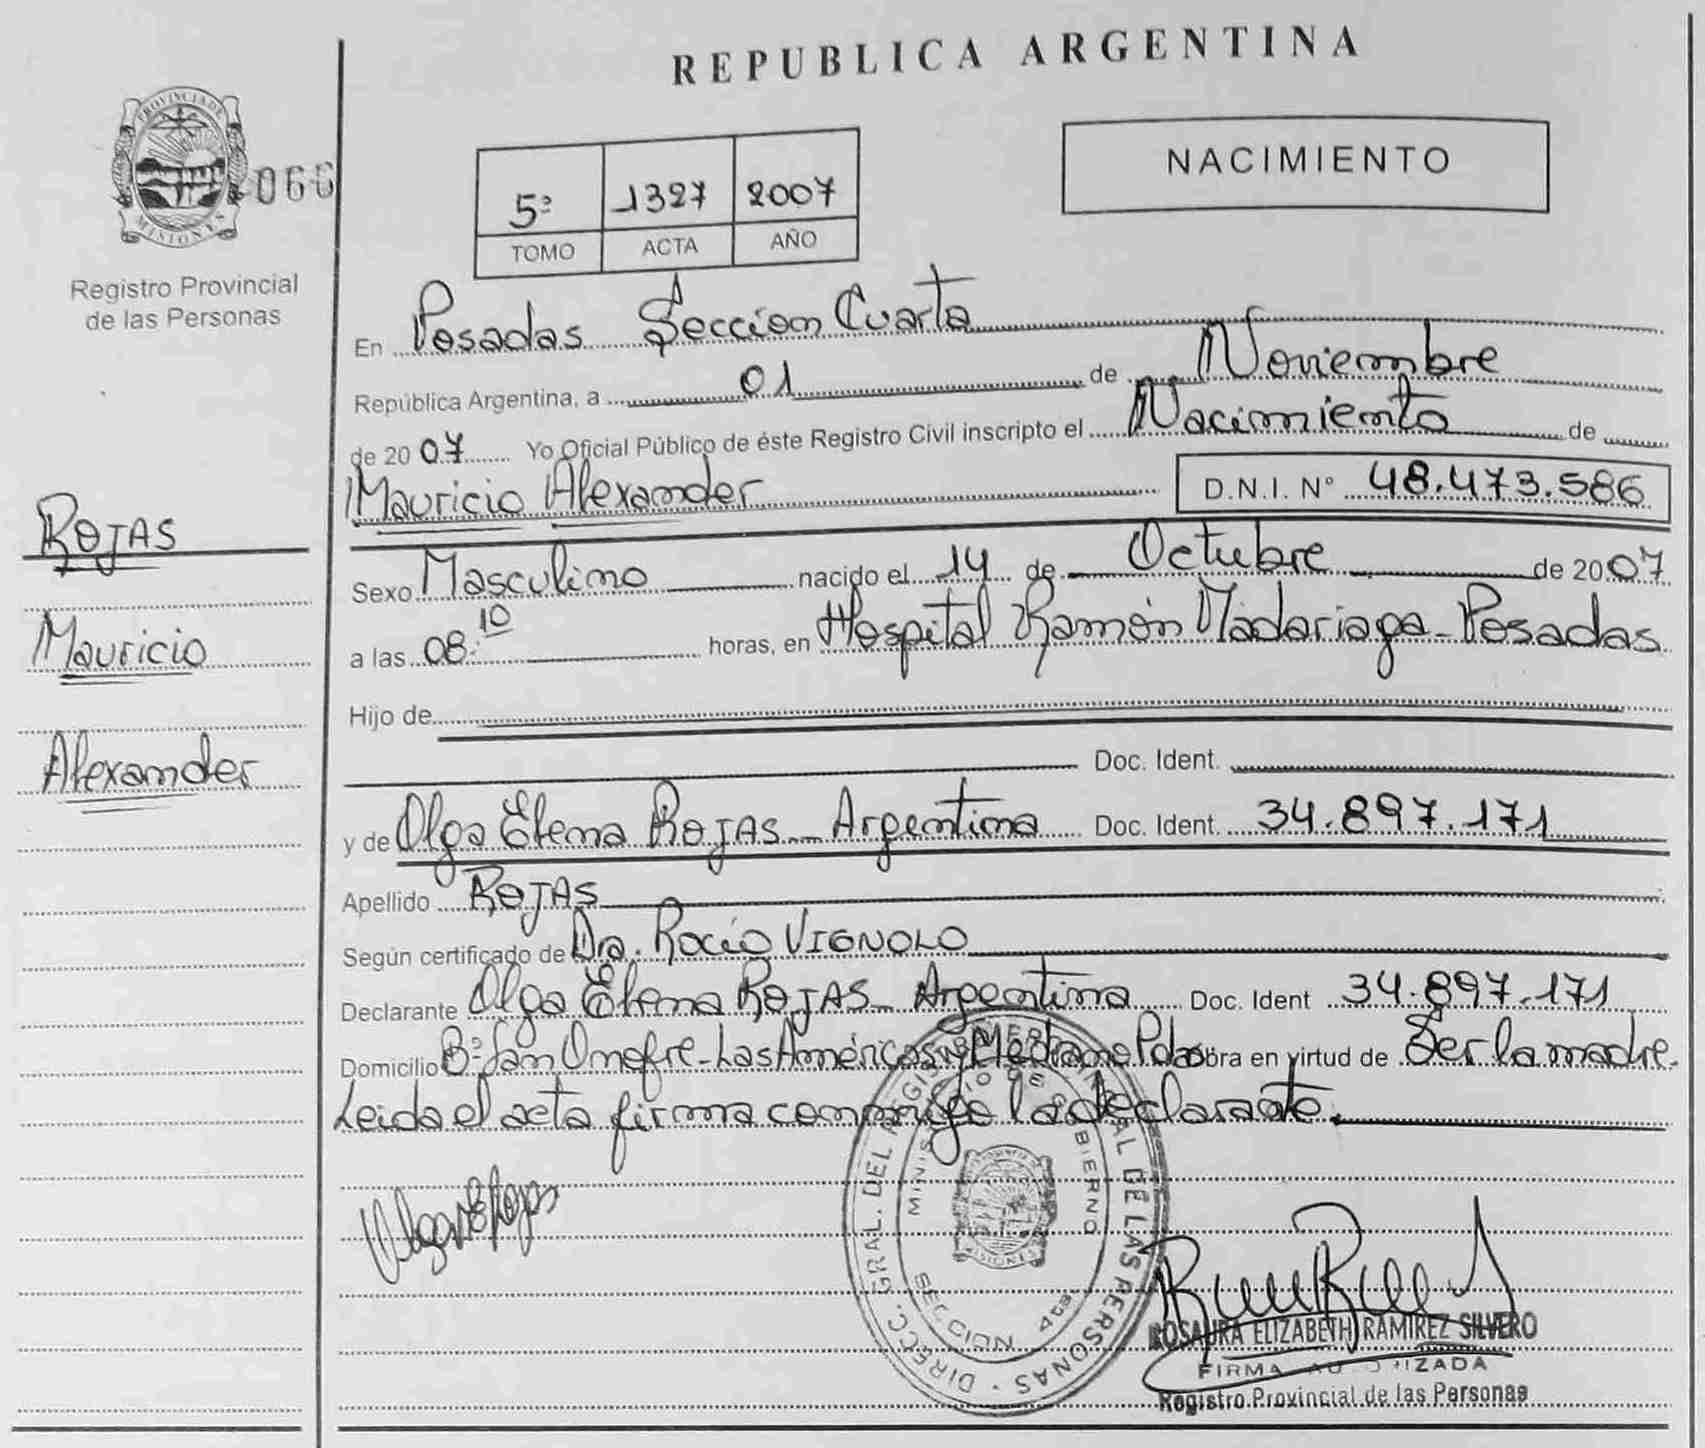 REPUBLICA ARGENTINA
PROVINCIA DE
MISIONES
066
Registro Provincial
de las Personas
5º 1327 2007
TOMO ACTA AÑO
NACIMIENTO
En Posadas Sección Cuarta
República Argentina, a 01 de Noviembre
de 2007 Yo Oficial Público de éste Registro Civil inscripto el Nacimiento de
Mauricio Alexander D.N.I. Nº 48.473.586
ROJAS
Mauricio
Alexander
Sexo Masculino nacido el 14 de Octubre de 2007
a las 08:10 horas, en Hospital Ramón Madariaga - Posadas
Hijo de
Doc. Ident.
y de Olga Elena ROJAS - Argentina Doc. Ident. 34.897.171
Apellido ROJAS
Según certificado de Dra. Rocío VIGNOLO
Declarante Olga Elena ROJAS - Argentina Doc. Ident 34.897.171
Domicilio Bº San Onofre - Las Américas y Medrano Pdas obra en virtud de Ser la madre.
Leida el acta firma conmigo la declarante.
DIRECC. GRAL. DEL REGISTRO PROVINCIAL DE LAS PERSONAS
MINISTERIO DE GOBIERNO
SECCION 4ta
MISIONES
ROSAURA ELIZABETH RAMIREZ SILVERO
FIRMA AUTORIZADA
Registro Provincial de las Personas